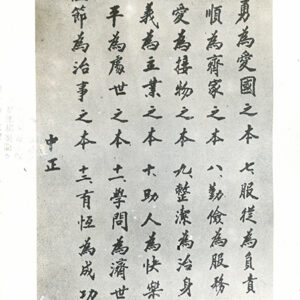 勇為愛國之本 七、服從為負責
順為齊家之本 八、勤儉為服務
愛為接物之本 九、整潔為治身
義為立業之本 十、助人為快樂
平為處世之本 十一、學問為濟世
節為治事之本 十二、有恆為成功
中正